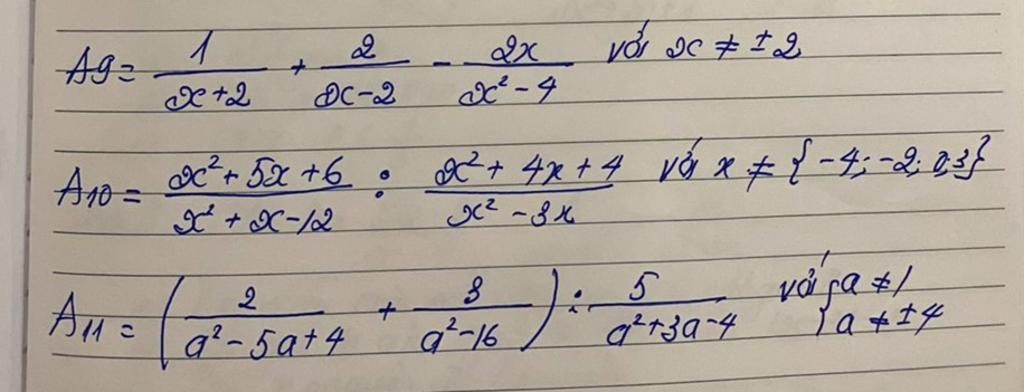 A9 = 1/(x+2) + 2/(x-2) - 2x/(x²-4) với x ≠ ±2
A10 = (x²+5x+6)/(x²+x-12) : (x²+4x+4)/(x²-3x) với x ≠ {-4; -2; 0; 3}
A11 = (2/(a²-5a+4) + 3/(a²-16)) : 5/(a²+3a-4) với { a ≠ 1
a ≠ ±4